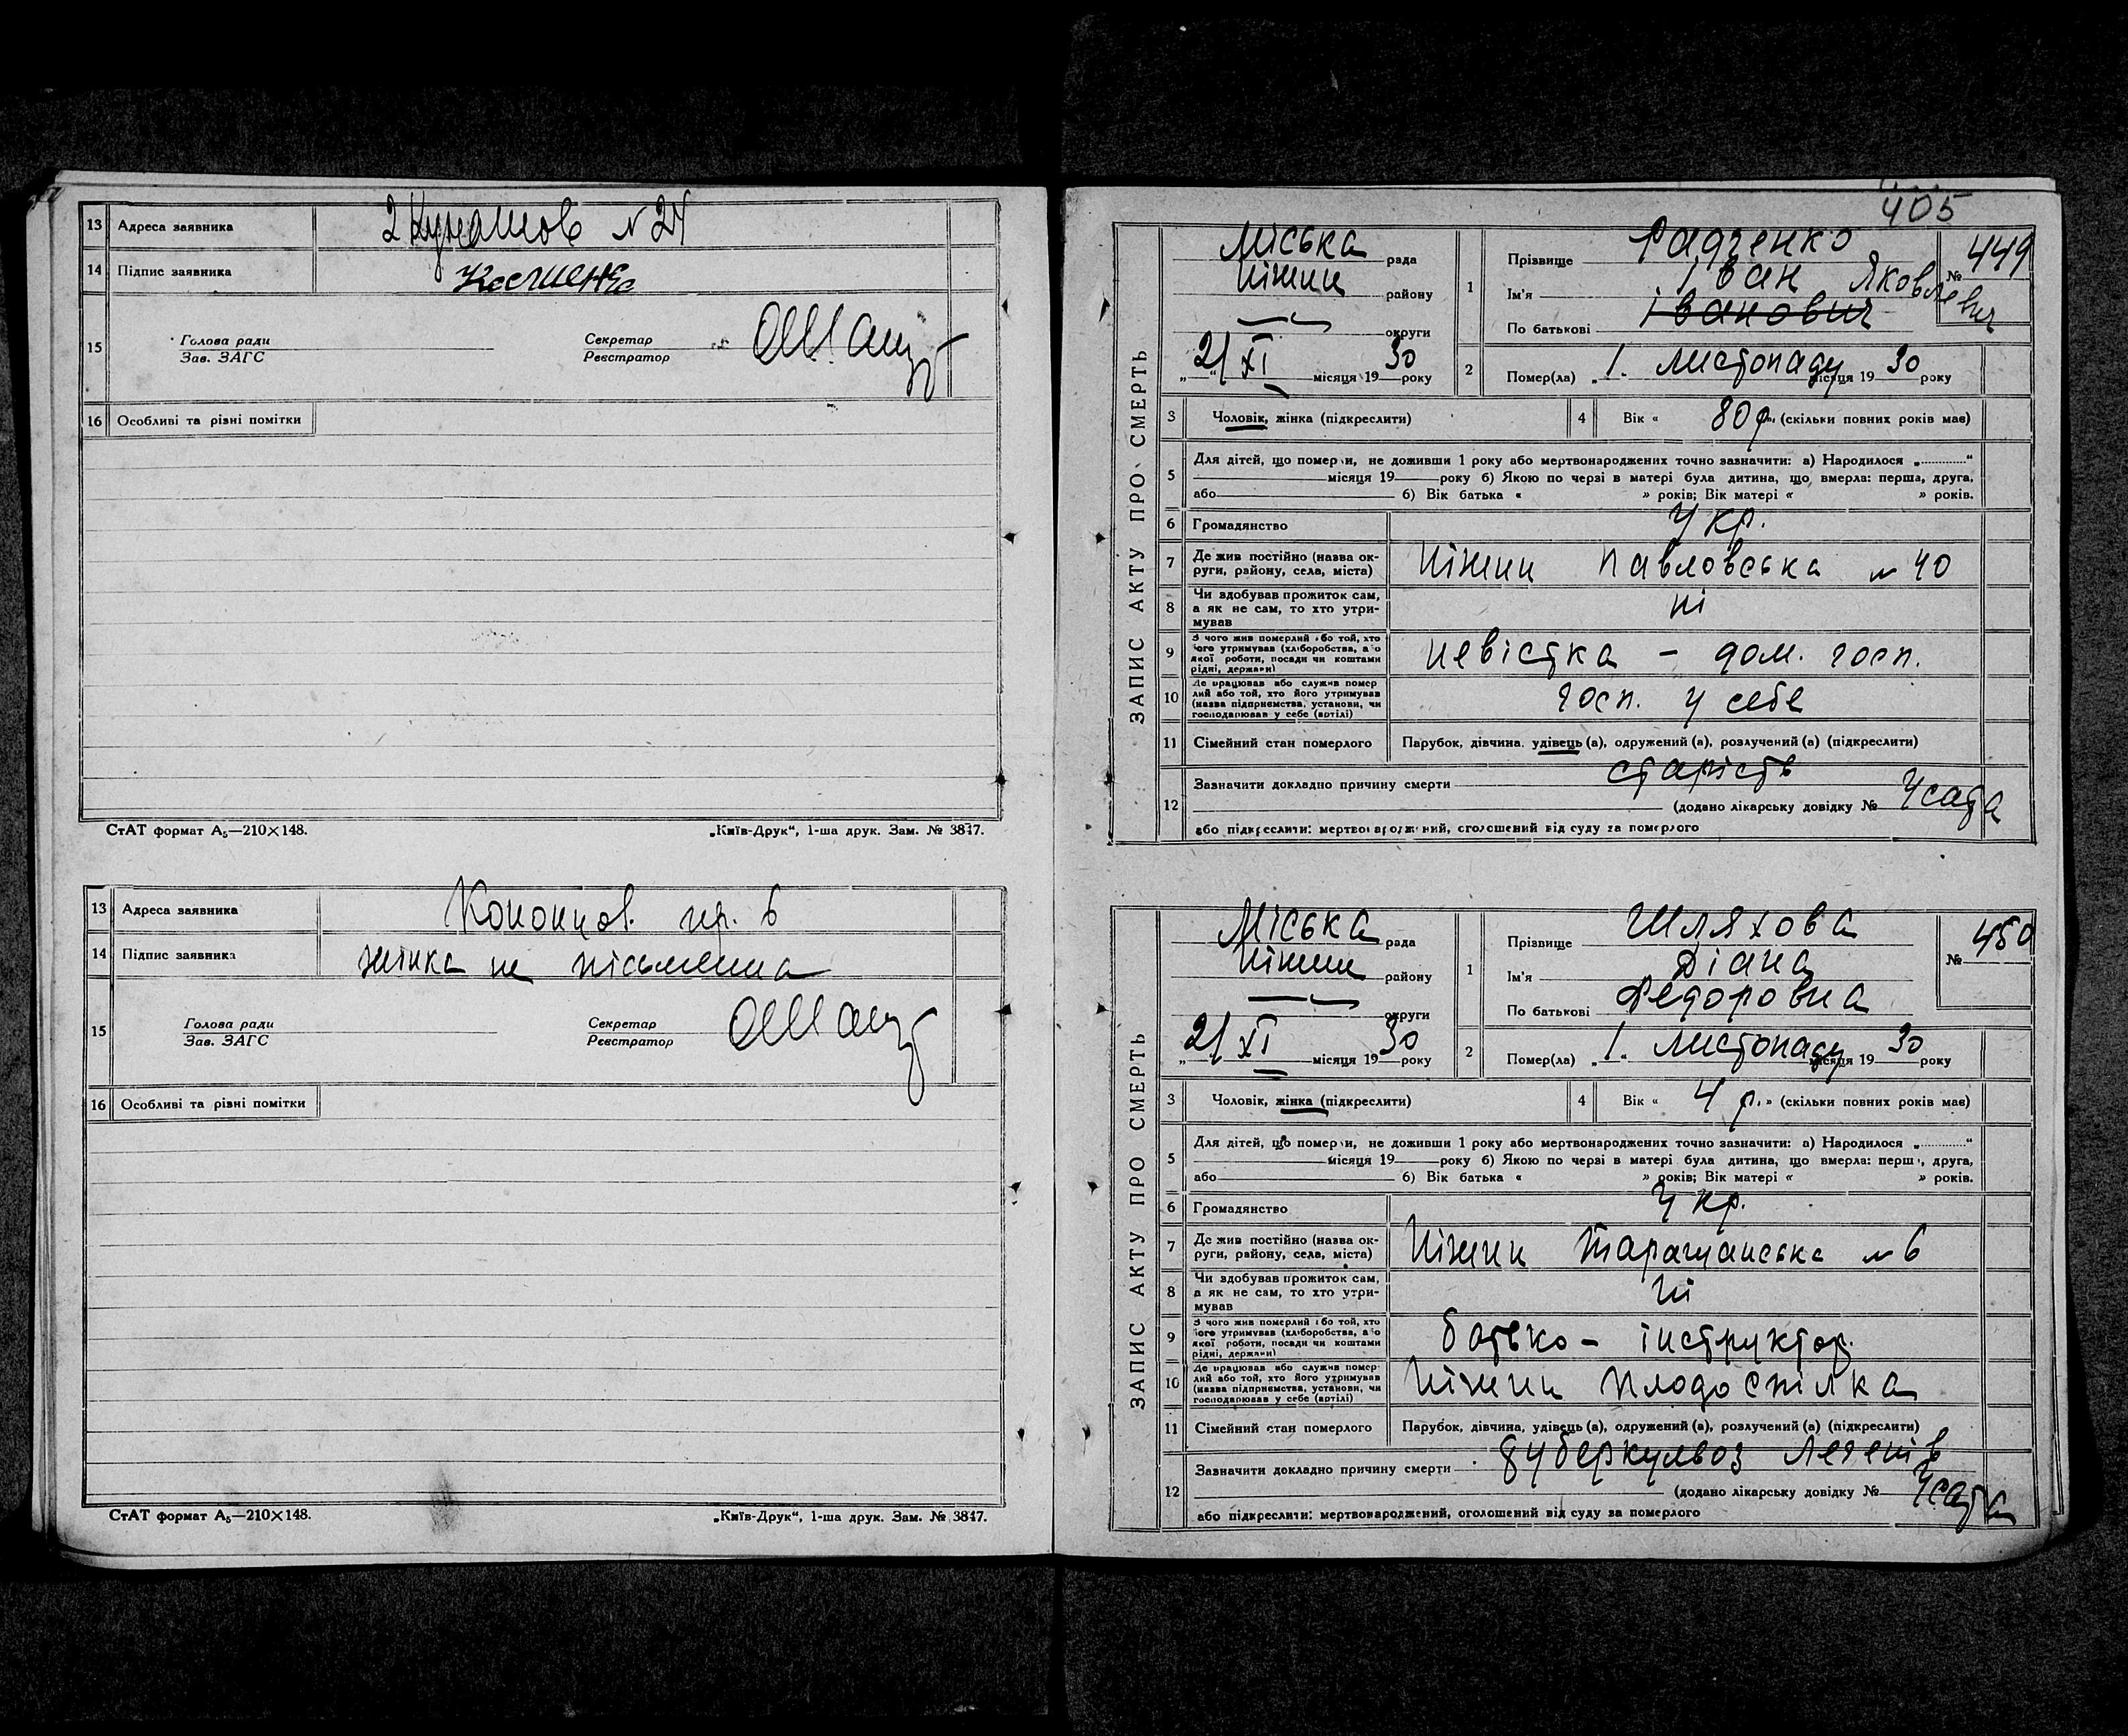 13 Адреса заявника 2 Кунашов N 24
14 Підпис заявника
15 Голова ради Секретар
Зав. ЗАГС Реєстратор
16 Особливі та різні помітки
СтАТ формат А₅—210×148. „Київ-Друк“, 1-ша друк. Зам. № 3847.
13 Адреса заявника Кононнов. пр. 6
14 Підпис заявника жінка не пісьменна
15 Голова ради Секретар
Зав. ЗАГС Реєстратор
16 Особливі та різні помітки
СтАТ формат А₅—210×148. „Київ-Друк“, 1-ша друк. Зам. № 3847.
405
ЗАПИС АКТУ ПРО СМЕРТЬ
Міська рада
Ніжин району
округи
„21“ XI місяця 1930 року
1 Прізвище Радченко
Ім'я Іван Яковлевич
По батькові Іванович
№ 449
2 Помер(ла) „1“ листопаду місяця 1930 року
3 Чоловік, жінка (підкреслити) 4 Вік « 80 р.» (скільки повних років мав)
5 Для дітей, що померли, не доживши 1 року або мертвонароджених точно зазначити: а) Народилося „............“
місяця 19 року б) Якою по черзі в матері була дитина, що вмерла: перша, друга,
або б) Вік батька « » років; Вік матері « » років.
6 Громадянство Укр.
7 Де жив постійно (назва ок-
руги, району, села, міста) Ніжин Павловська N 40
8 Чи здобував прожиток сам,
а як не сам, то хто утри-
мував ні
9 З чого жив померлий або той, хто
його утримував (хліборобства, а'о
якої роботи, посади чи коштами
рідні, держави) невістка – дом. госп.
10 Де працював або служив помер
лий або той, хто його утримував
(назва підприємства, установи, чи
господарював у себе (артілі) госп. у себе
11 Сімейний стан померлого Парубок, дівчина, удівець (а), одружений (а), розлучений (а) (підкреслити)
12 Зазначити докладно причину смерти старість
(додано лікарську довідку № Усада
або підкреслити: мертвонароджений, оголошений від суду за померлого
ЗАПИС АКТУ ПРО СМЕРТЬ
Міська рада
Ніжин району
округи
„21“ XI місяця 1930 року
1 Прізвище Шляхова
Ім'я Діана
По батькові Федоровна
№ 450
2 Помер(ла) „1“ листопаду місяця 1930 року
3 Чоловік, жінка (підкреслити) 4 Вік « 4 р.» (скільки повних років мав)
5 Для дітей, що померли, не доживши 1 року або мертвонароджених точно зазначити: а) Народилося „............“
місяця 19 року б) Якою по черзі в матері була дитина, що вмерла: перша, друга,
або б) Вік батька « » років; Вік матері « » років.
6 Громадянство Укр.
7 Де жив постійно (назва ок-
руги, району, села, міста) Ніжин Таращанська N 6
8 Чи здобував прожиток сам,
а як не сам, то хто утри-
мував ні
9 З чого жив померлий або той, хто
його утримував (хліборобства, а'о
якої роботи, посади чи коштами
рідні, держави) батько – інструктор.
10 Де працював або служив помер-
лий або той, хто його утримував
(назва підприємства, установи, чи
господарював у себе (артілі) Ніжин Плодоспілка
11 Сімейний стан померлого Парубок, дівчина, удівець (а), одружений (а), розлучений (а) (підкреслити)
12 Зазначити докладно причину смерти туберкульоз легенів
(додано лікарську довідку № Усада
або підкреслити: мертвонароджений, оголошений від суду за померлого